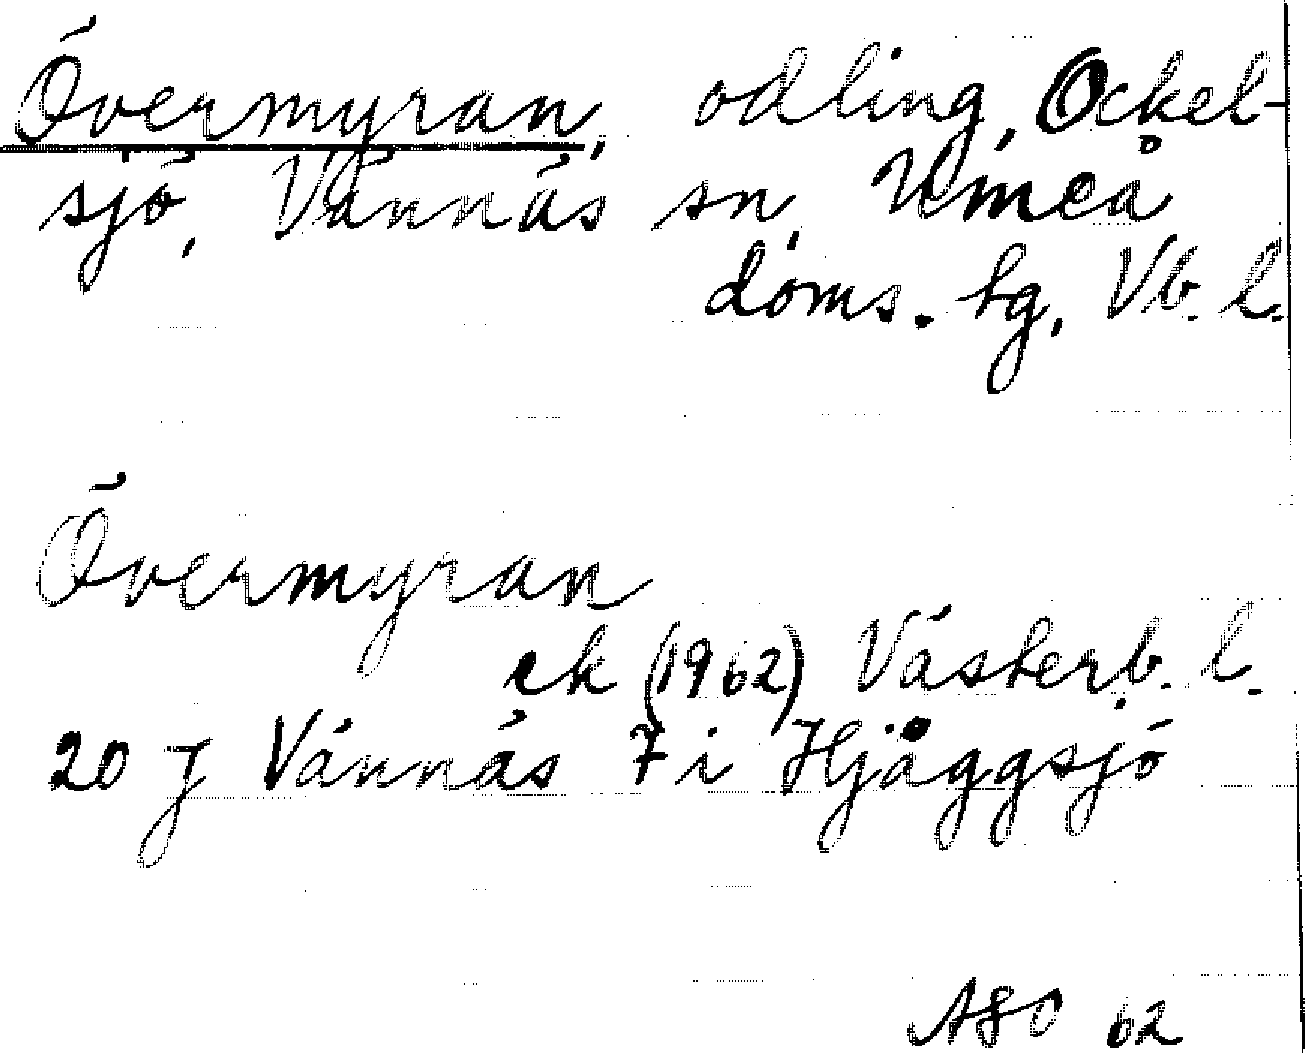 Övermyran, odling, Ockel-
sjö, Vännäs sn, Umeå
doms. tg, Vb. l.
Övermyran
ek (1962) Västerb. l.
20 J Vännäs 7 i Hjåggsjö
ASO 62